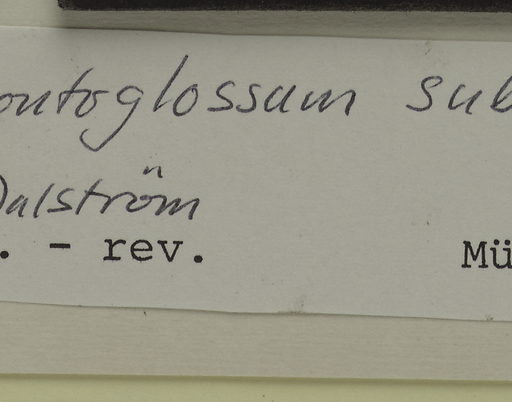 ontoglossum sub
Dalström
. - rev. Mü